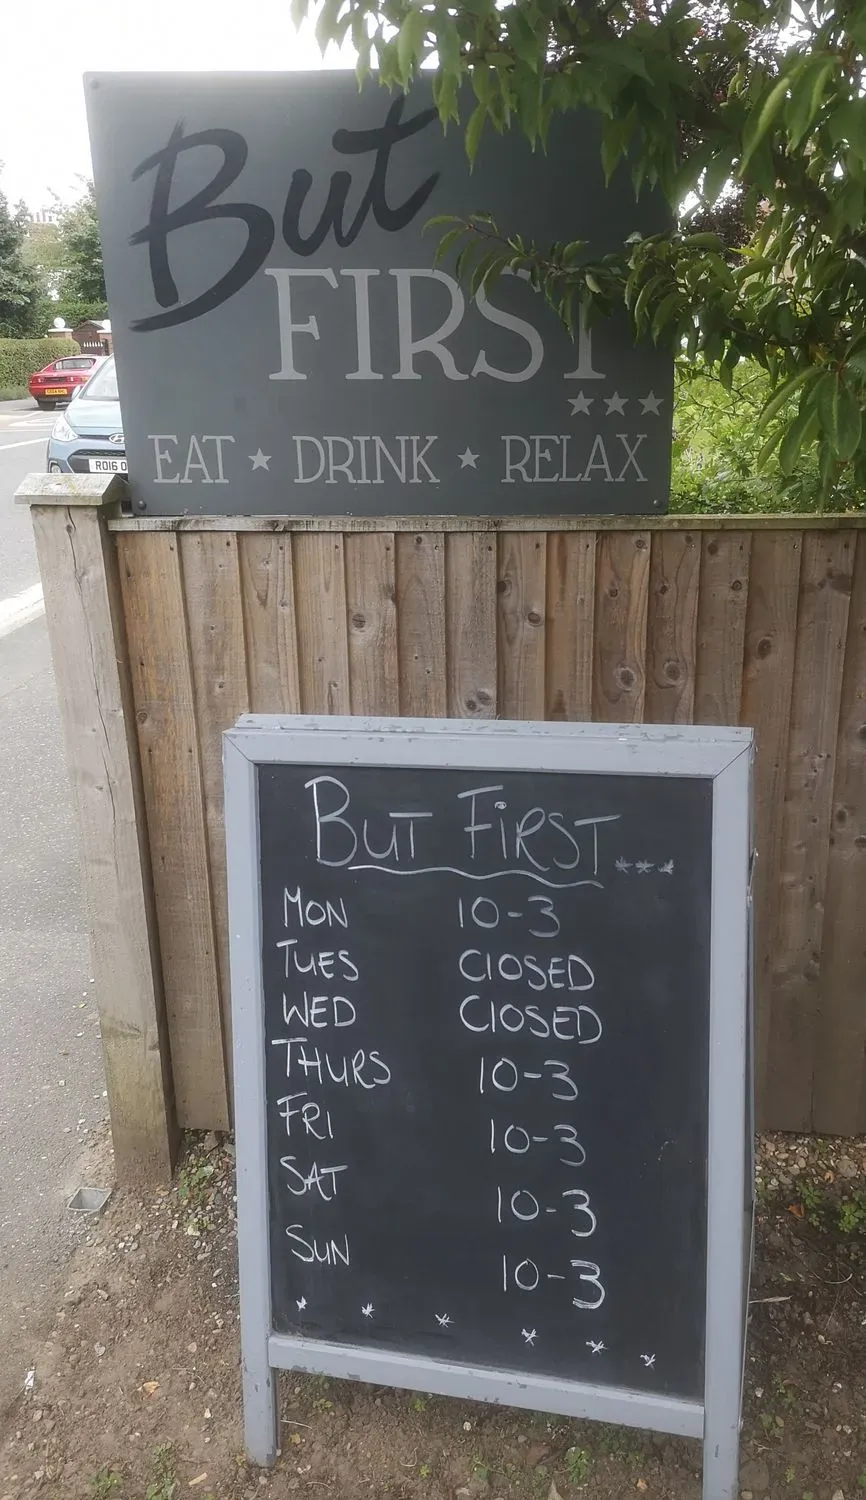 But
FIRST
★★★
EAT ★ DRINK ★ RELAX
RO16 O
BUT FIRST***
MON 10-3
TUES CLOSED
WED CLOSED
THURS 10-3
FRI 10-3
SAT 10-3
SUN 10-3
* * * * * *